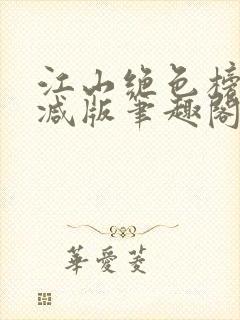 江山绝色榜
减版笔趣阁
華愛菱